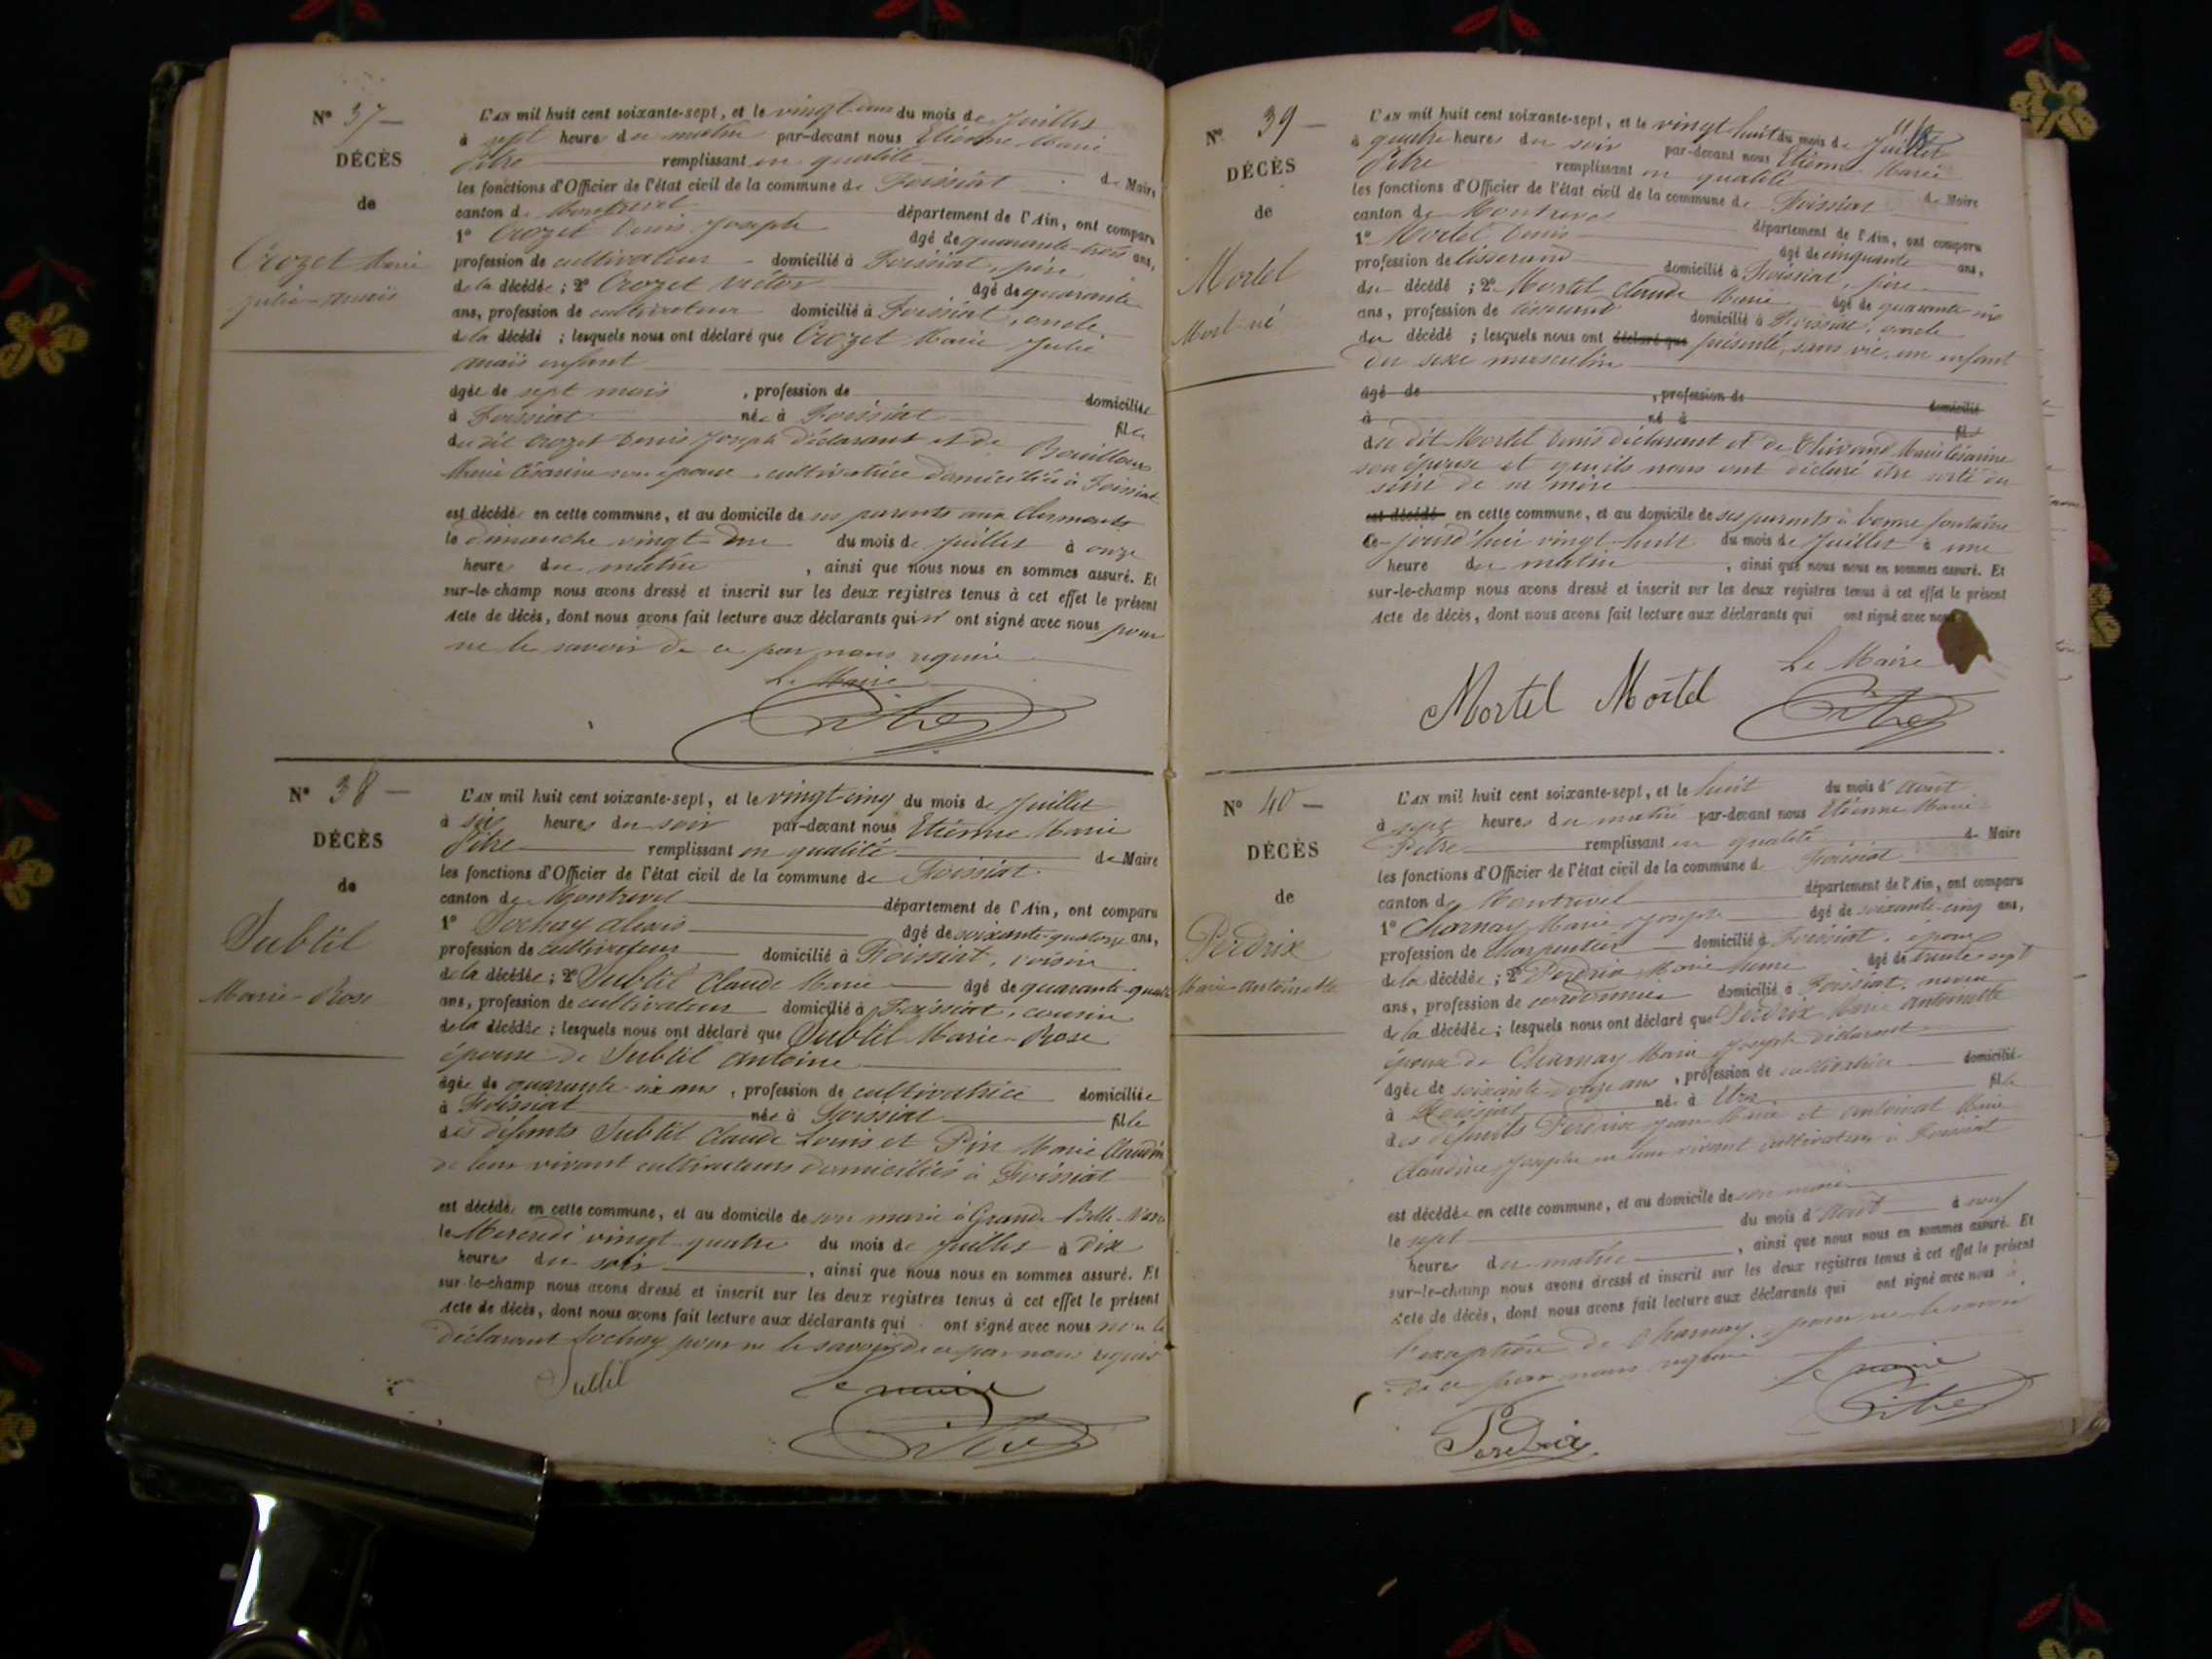 N° 37 —
DÉCÈS
de
Crozet Marie
julie-anaïs
L'AN mil huit cent soixante-sept, et le vingt deux du mois de Juillet
à sept heures du matin par-devant nous Etienne Marie
Pitre remplissant en qualité
les fonctions d'Officier de l'état civil de la commune de Foissiat de Maire
canton de Montrevel département de l'Ain, ont comparu
1° Crozet Denis Joseph âgé de quarante-trois ans,
profession de cultivateur domicilié à Foissiat, père
de la décédée ; 2° Crozet Victor âgé de quarante
ans, profession de cultivateur domicilié à Foissiat, oncle
de la décédé ; lesquels nous ont déclaré que Crozet Marie Julie
anaïs enfant
âgée de sept mois , profession de domiciliée
à Foissiat née à Foissiat fille
du dit Crozet Denis Joseph déclarant et de Bouilloux
Marie Césarine son épouse cultivatrice domiciliée à Foissiat
est décédée en cette commune, et au domicile de ses parents aux Clermonts
le dimanche vingt-un du mois de Juillet à onze
heures du matin , ainsi que nous nous en sommes assuré. Et
sur-le-champ nous avons dressé et inscrit sur les deux registres tenus à cet effet le présent
Acte de décès, dont nous avons fait lecture aux déclarants qui n' ont signé avec nous pour
ne le savoir de ce par nous requis
Le Maire
Pitre
N° 38 —
DÉCÈS
de
Subtil
Marie-Rose
L'AN mil huit cent soixante-sept, et le vingt-cinq du mois de Juillet
à six heures du soir par-devant nous Etienne Marie
Pitre remplissant en qualité de Maire
les fonctions d'Officier de l'état civil de la commune de Foissiat
canton de Montrevel département de l'Ain, ont comparu
1° Sochay alexis âgé de soixante-quatorze ans,
profession de cultivateur domicilié à Foissiat, voisin
de la décédée ; 2° Subtil Claude Marie âgé de quarante-quatre
ans, profession de cultivateur domicilié à Foissiat, cousin
de la décédée ; lesquels nous ont déclaré que Subtil Marie-Rose
épouse de Subtil antoine
âgée de quarante six ans , profession de cultivatrice domiciliée
à Foissiat née à Foissiat fille
des défunts Subtil Claude Louis et Pin Marie Claudine
de leur vivant cultivateurs domiciliés à Foissiat
est décédée en cette commune, et au domicile de son mari à Grande Belle-
le Mercredi vingt quatre du mois de Juillet à dix
heures du soir , ainsi que nous nous en sommes assuré. Et
sur-le-champ nous avons dressé et inscrit sur les deux registres tenus à cet effet le présent
Acte de décès, dont nous avons fait lecture aux déclarants qui ont signé avec nous non le
déclarant Sochay pour ne le savoir de ce par nous requis
Subtil
Le maire
Pitre
N° 39 —
DÉCÈS
de
Mortel
Mort-né
L'AN mil huit cent soixante-sept, et le vingt huit du mois de Juillet
à quatre heures du soir par-devant nous Etienne Marie
Pitre remplissant en qualité de Maire
les fonctions d'Officier de l'état civil de la commune de Foissiat
canton de Montrevel département de l'Ain, ont comparu
1° Mortel Denis âgé de cinquante ans,
profession de tisserand domicilié à Foissiat, père
du décédé ; 2° Mortel Claude Marie âgé de quarante six
ans, profession de tisserand domicilié à Foissiat, oncle
du décédé ; lesquels nous ont déclaré que présenté, sans vie, un enfant
du sexe masculin
âgé de , profession de domicilié
à né à fils
du dit Mortel Denis déclarant et de Marie Césarine
son épouse et qu'ils nous ont déclaré être sorti du
sein de sa mère
est décédé en cette commune, et au domicile de ses parents à bonne fontaine
ce jourd'hui vingt-huit du mois de Juillet à une
heure du matin , ainsi que nous nous en sommes assuré. Et
sur-le-champ nous avons dressé et inscrit sur les deux registres tenus à cet effet le présent
Acte de décès, dont nous avons fait lecture aux déclarants qui ont signé avec nous
Le Maire
Mortel Mortel Pitre
N° 40 —
DÉCÈS
de
Perdrix
Marie-antoinette
L'AN mil huit cent soixante-sept, et le huit du mois d'août
à sept heures du matin par-devant nous Etienne Marie
Pitre remplissant en qualité de Maire
les fonctions d'Officier de l'état civil de la commune de Foissiat
canton de Montrevel département de l'Ain, ont comparu
1° Charnay Marie Joseph âgé de soixante-cinq ans,
profession de charpentier domicilié à Foissiat, époux
de la décédée ; 2° Perdrix Marie âgé de trente-sept
ans, profession de cordonnier domicilié à Foissiat, neveu
de la décédée ; lesquels nous ont déclaré que Perdrix Marie antoinette
épouse de Charnay Marie Joseph déclarant
âgée de soixante-onze ans , profession de cultivatrice domiciliée
à Foissiat née à fille
des défunts Perdrix Jean Marie et Marie
Claudine Josephe en leur vivant cultivateurs à Foissiat
est décédée en cette commune, et au domicile de son mari
le sept du mois d'août à neuf
heures du matin , ainsi que nous nous en sommes assuré. Et
sur-le-champ nous avons dressé et inscrit sur les deux registres tenus à cet effet le présent
Acte de décès, dont nous avons fait lecture aux déclarants qui ont signé avec nous à
l'exception de Charnay, pour ne le savoir
de ce par nous requis
Le maire
Pitre
Perdrix